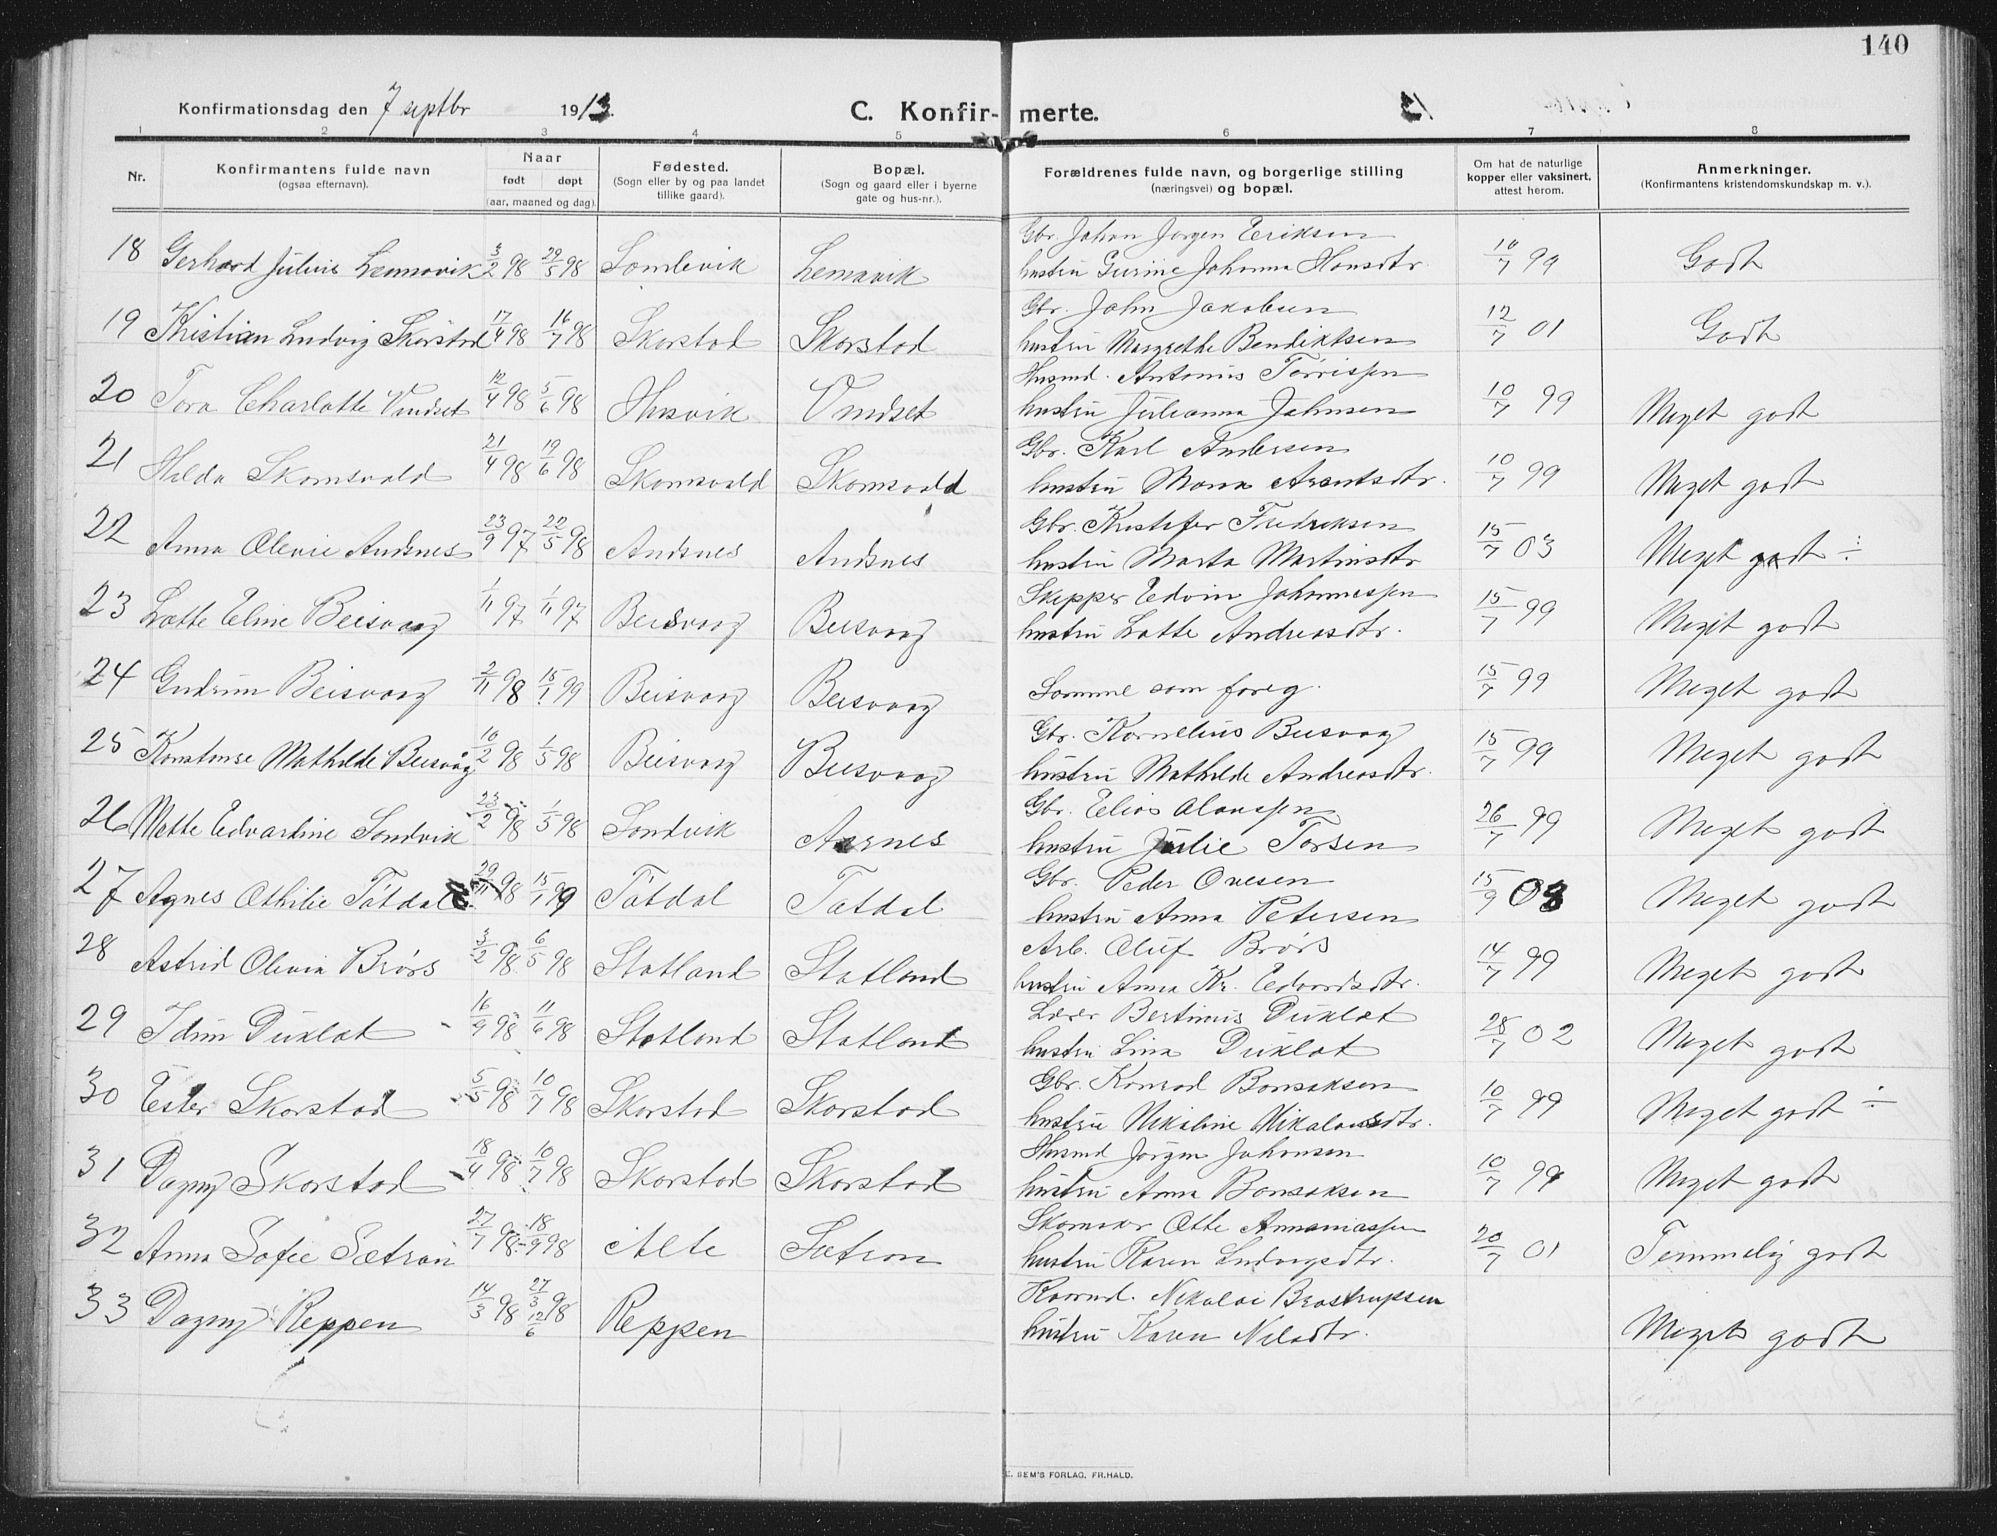 140
Konfirmationsdag den 7 septbr 1913. C. Konfir- merte.
1 2 3 4 5 6 7 8
Nr. Konfirmantens fulde navn (ogsaa efternavn). Naar født døpt (aar, maaned og dag). Fødested. (Sogn eller by og paa landet tillike gaard). Bopæl. (Sogn og gaard eller i byerne gate og hus-nr.). Forældrenes fulde navn, og borgerlige stilling (næringsvei) og bopæl. Om hat de naturlige kopper eller vaksinert, attest herom. Anmerkninger. (Konfirmantens kristendomskundskap m. v.).
Gbr. Johan Jørgen Eriksen
18 Gerhard Julius Lemavik 3/2 98 29/5 98 Lemavik hustru Gurine Johanna Hansdtr. 99 Godt
Gbr. John Jakobsen
19 Kristian Ludvig Skorstad 17/4 98 16/7 98 Skorstad Skorstad hustru Margrethe Bendiktsen 12/7 01 Godt
Husmd. Antonius Tørrissen
20 Tora Charlotte Vindset 12/4 98 5/6 98 Husvik Vindset hustru Julianna Johnsen 10/7 99 Meget godt
Gbr. Karl Andersen
21 Hilda Skomsvold 21/4 98 19/6 98 Skomsvold Skomsvold hustru Arentsdtr. 10/7 99 Meget godt
Gbr. Kristofer Fredriksen
22 Anna Olevie Andsnes 23/9 97 22/5 98 Andsnes Andsnes hustru Marta Martinsdtr 15/7 03 Meget godt ÷
Skipper Edvin Johannessen
23 Lotte Eline Beisvaag 1/11 97 Beisvaag Beisvaag hustru Lotte Andreasdtr. 15/7 99 Meget godt
24 Gudrun Beisvaag 2/11 98 15/1 99 Beisvaag Beisvaag Samme som foreg. 15/7 99 Meget godt
Gbr. Kornelius Beisvaag
25 Konstanse Mathilde Beisvåg 10/2 98 1/5 98 Beisvaag Beisvaag hustru Mathilde Andreasdtr. 15/7 99 Meget godt
Gbr. Elias
26 Mette Edvartine Sandvik 23/2 98 1/5 98 Sandvik Aarnes hustru Julie Torsen 26/7 99 Meget godt
Gbr. Peder Ovesen
27 Agnes Othilie Tøtdal 98 15/1 99 Tøtdal Tøtdal hustru Anna Petersen 15/9 03 Meget godt
Arb. Oluf Brørs
28 Astrid Olevia Brørs 3/2 98 6/5 98 Statland Statland hustru Anna Kr. Edvardsdtr. 14/7 99 Meget godt
Lærer Bertinus Duklæt
29 Idun Duklæt 98 11/6 98 Statland Statland hustru Lina Duklæt 28/7 02 Meget godt
Gbr. Konrad Bonsaksen
30 Ester Skorstad 5/5 98 10/7 98 Skorstad Skorstad hustru Nikoline Nikolausdtr. 10/7 99 Meget godt ÷
Husmd Jørgen Johansen
31 Dagny Skorstad 18/4 98 10/7 98 Skorstad Skorstad hustru Anna Bonsaksen 10/7 99 Meget godt
Skomaker Otte Annaniassen
32 Anna Sofie Sætran 27/7 98 18/9 98 Alte Sætran hustru Karen Ludvigsdtr. 20/7 01 Temmelig godt
Nikolai Brostrupsen
33 Dagny Reppen 14/3 98 27/3 98 12/6 Reppen hustru Karen Nilsdtr. Meget godt
E. SEM'S FORLAG, FR.HALD.